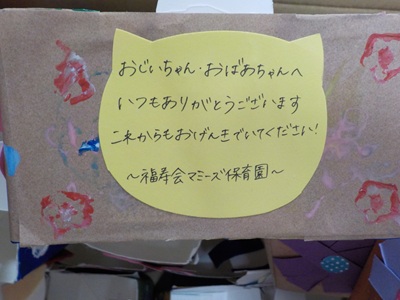 おじいちゃん・おばあちゃんへ
いつもありがとうございます
これからもおげんきでいてください!
～福寿会マミーズ保育園～